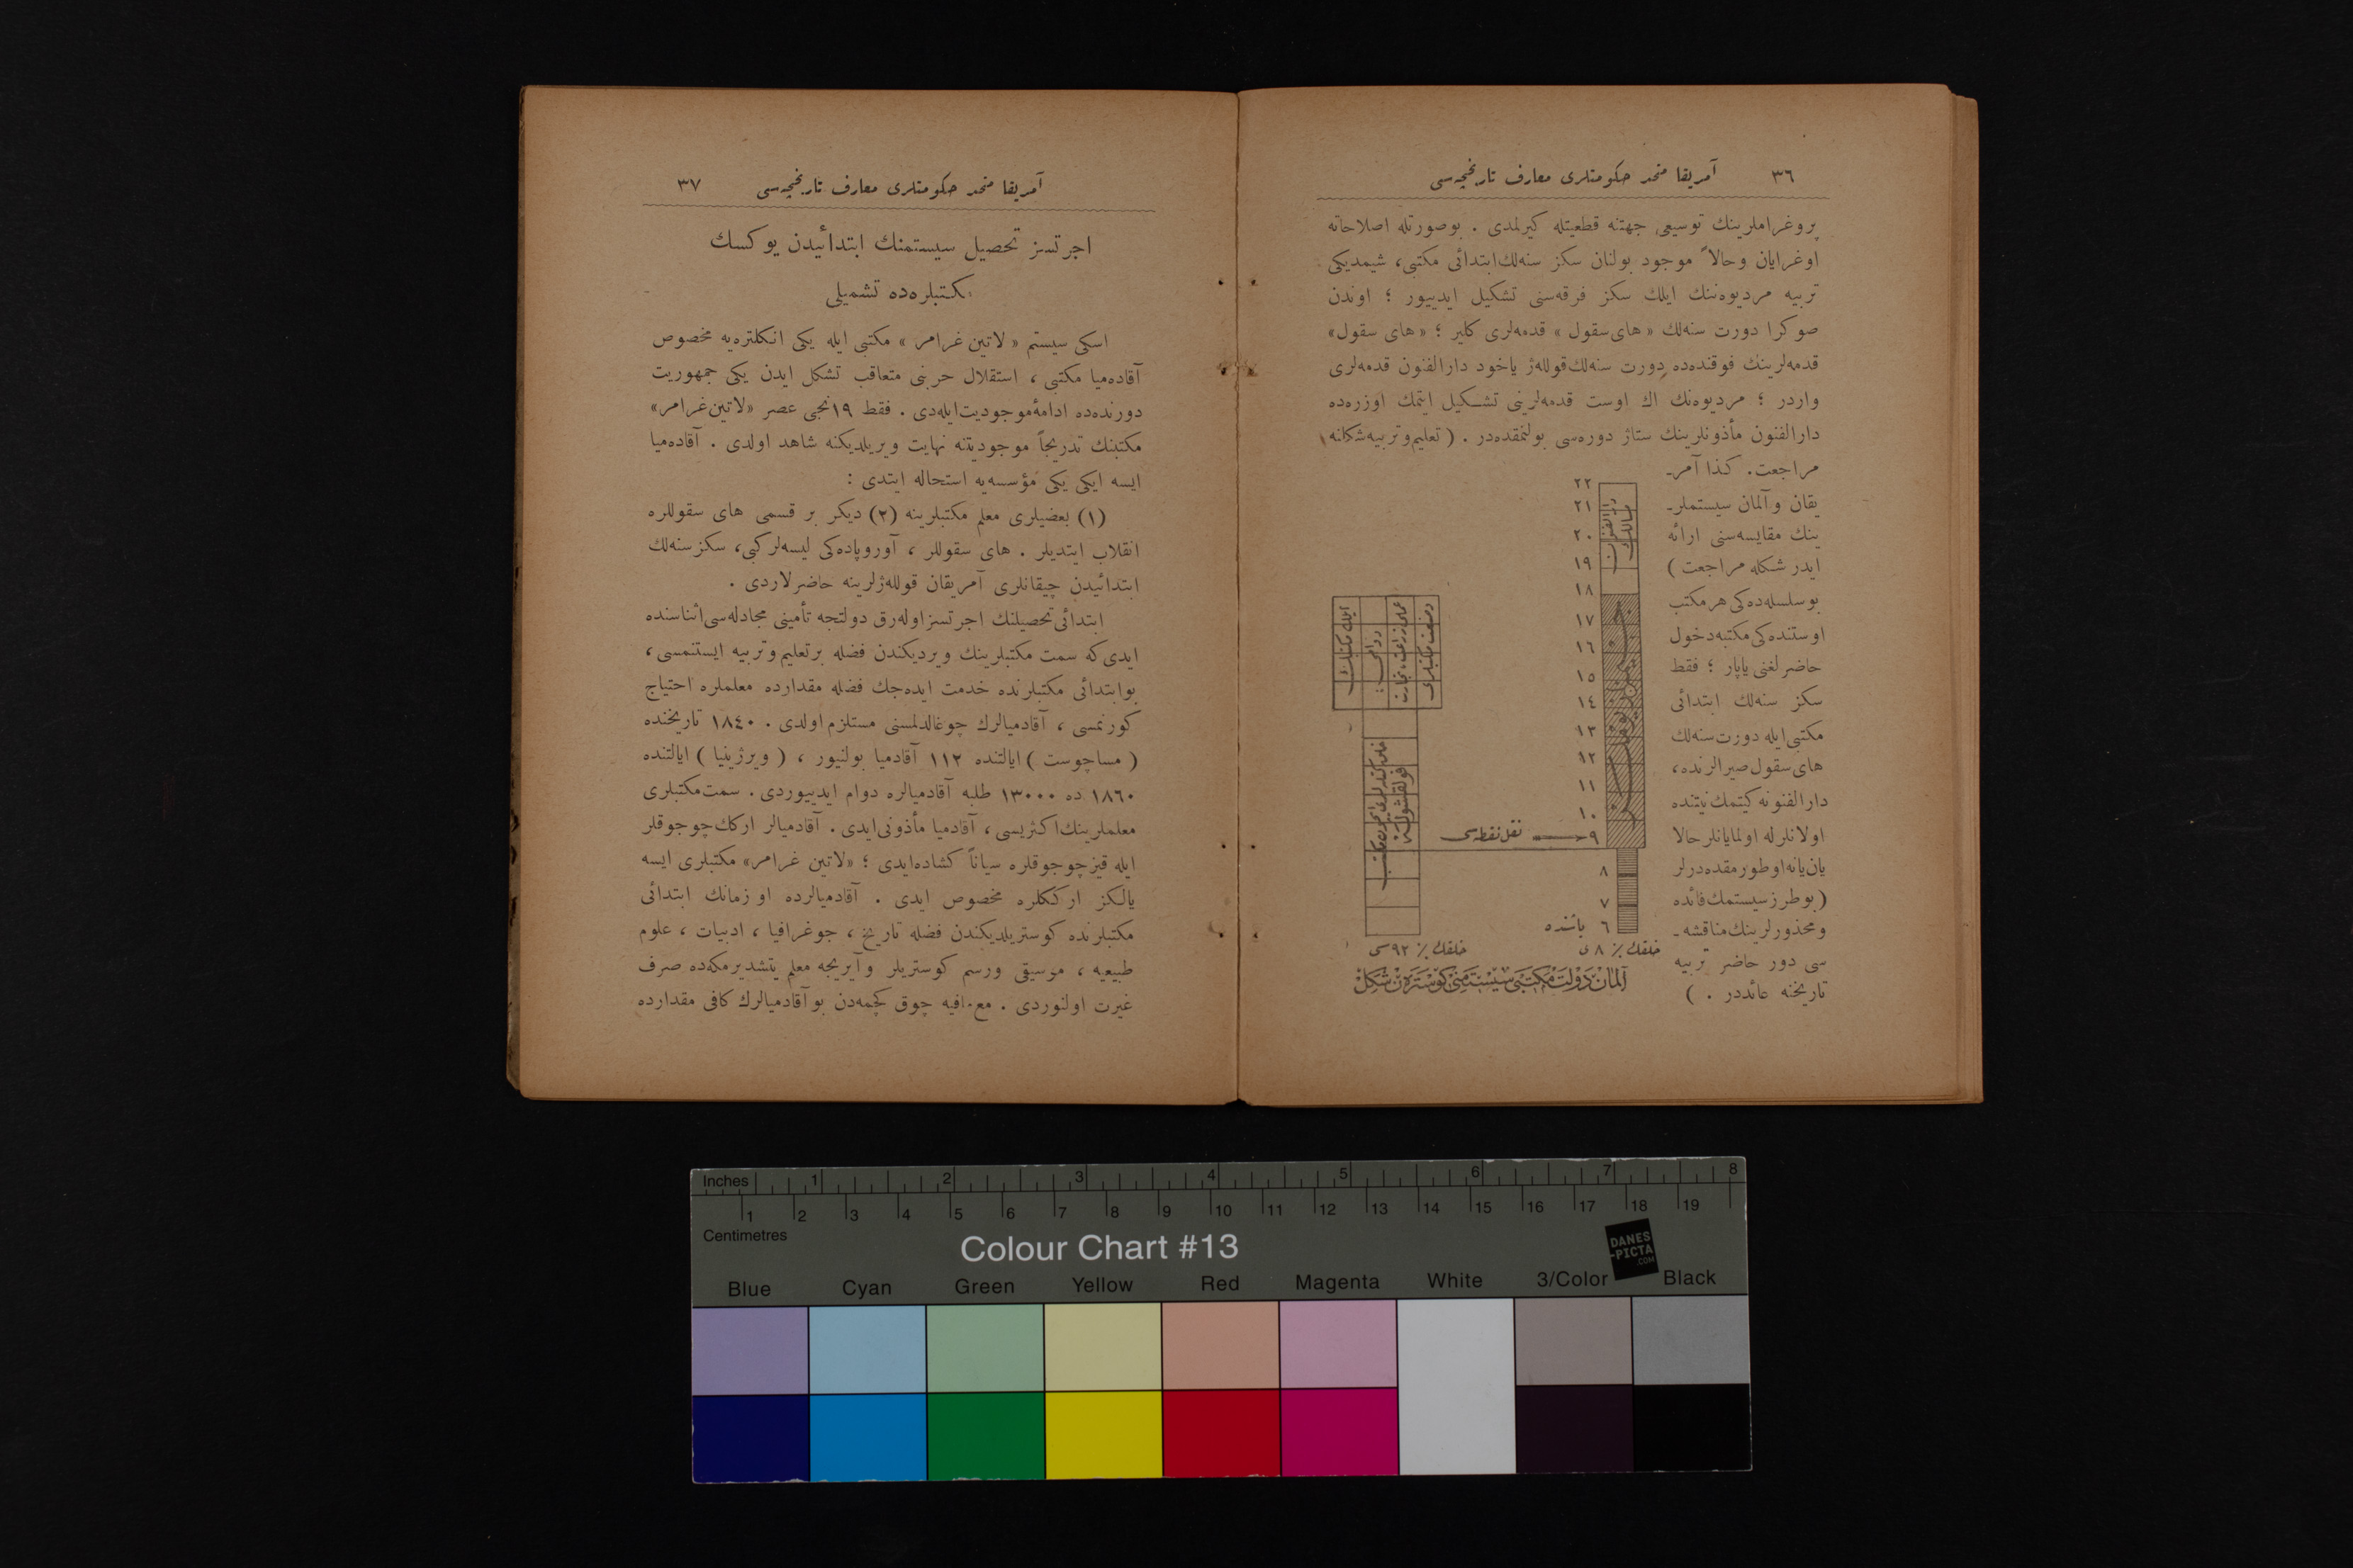 ٣٦ آمريقا متحد حكومتلرى معارف تاريخچه‌سى
پروغراملرينك توسيعى جهتنه قطعيتله كيرلمدى . بوصورتله اصلاحاته
اوغرايان وحالاً موجود بولنان سكز سنه‌لك ابتدائى مكتبى، شيمديكى
تربيه مرديوه‌ننك ايلك سكز فرقه‌سنى تشكيل ايدييور ؛ اوندن
صوكرا دورت سنه‌لك « هاى سقول » قدمه‌لرى كلير ؛ « هاى سقول»
قدمه‌لرينك فوقنده‌ده دورت سنه‌لك قوللەژ ياخود دارالفنون قدمه‌لرى
واردر ؛ مرديوه‌نك اك اوست قدمه‌لرينى تشكيل ايتمك اوزره‌ده
دارالفنون مأذونلرينك ستاژ دوره‌سى بولنمقده‌در . ( تعليم وتربيه شكلنه
مراجعت. كذا آمر-
يقان و آلمان سيستملر-
ينك مقايسه‌سنى ارائه
ايدر شكله مراجعت )
بوسلسله‌ده‌كى هر مكتب
اوستنده‌كى مكتبه دخول
حاضرلغنى ياپار ؛ فقط
سكز سنه‌لك ابتدائى
مكتبى ايله دورت سنه‌لك
هاى سقول صيرالرنده،
دارالفنونه كيتمك نيتنده
اولانلرله اولمايانلر حالا
يان يانه اوطورمقده‌درلر
(بو طرز سيستمك فائده
ومحذورلرينك مناقشه-
سى دور حاضر تربيه
تاريخنه عائددر . )
٢٢
٢١
٢٠
١٩
١٨
١٧
١٦
١٥
١٤
١٣
١٢
١١
١٠
٩ نقل نقطه‌سى
٨
٧
٦ ياشنده
خلقك ٪ ٨ ى
خلقك ٪ ٩٢ سى
آلمان دولت مكتبى سيستمنى كوسترەن شكل
آمريقا متحد حكومتلرى معارف تاريخچه‌سى ٣٧
اجرتسز تحصيل سيستمنك ابتدائيدن يوكسك
مكتبلره‌ده تشميلى
اسكى سيستم « لاتين غرامر » مكتبى ايله يكى انكلتره‌يه مخصوص
آقاده‌ميا مكتبى ، استقلال حربنى متعاقب تشكل ايدن يكى جمهوريت
دورنده‌ده ادامهٔ موجوديت ايله‌دى . فقط ١٩نجى عصر «لاتين غرامر»
مكتبنك تدريجاً موجوديتنه نهايت ويريلديكنه شاهد اولدى . آقاده‌ميا
ايسه ايكى يكى مؤسسه‌يه استحاله ايتدى :
(١) بعضيلرى معلم مكتبلرينه (٢) ديكر بر قسمى هاى سقوللره
انقلاب ايتديلر . هاى سقوللر ، آوروپاده‌كى ليسه‌لر كبى، سكز سنه‌لك
ابتدائيدن چيقانلرى آمريقان قوللەژلرينه حاضرلاردى .
ابتدائى تحصيلنك اجرتسز اوله‌رق دولتجه تأمينى مجادله‌سى اثناسنده
ايدى كه سمت مكتبلرينك ويرديكندن فضله بر تعليم وتربيه ايستنمسى،
بو ابتدائى مكتبلرنده خدمت ايده‌جك فضله مقدارده معلملره احتياج
كورنمسى ، آقادميالرك چوغالدلمسنى مستلزم اولدى . ١٨٤٠ تاريخنده
( مساچوست ) ايالتنده ١١٢ آقادميا بولنيور ، ( ويرژينيا ) ايالتنده
١٨٦٠ ده ١٣٠٠٠ طلبه آقادميالره دوام ايدييوردى . سمت مكتبلرى
معلملرينك اكثريسى ، آقادميا مأذونى ايدى . آقادميالر اركك چوجوقلر
ايله قيز چوجوقلره سياناً كشاده ايدى ؛ «لاتين غرامر» مكتبلرى ايسه
يالكز ارككلره مخصوص ايدى . آقادميالرده او زمانك ابتدائى
مكتبلرنده كوستريلديكندن فضله تاريخ ، جوغرافيا ، ادبيات ، علوم
طبيعيه ، موسيقى ورسم كوستريلر و آيريجه معلم يتشديرمكه‌ده صرف
غيرت اولنوردى . مع‌مافيه چوق كچمه‌دن بو آقادميالرك كافى مقدارده
Inches 1 2 3 4 5 6 7 8
1 2 3 4 5 6 7 8 9 10 11 12 13 14 15 16 17 18 19
Centimetres
Colour Chart #13
DANES
-PICTA
.COM
Blue Cyan Green Yellow Red Magenta White 3/Color Black